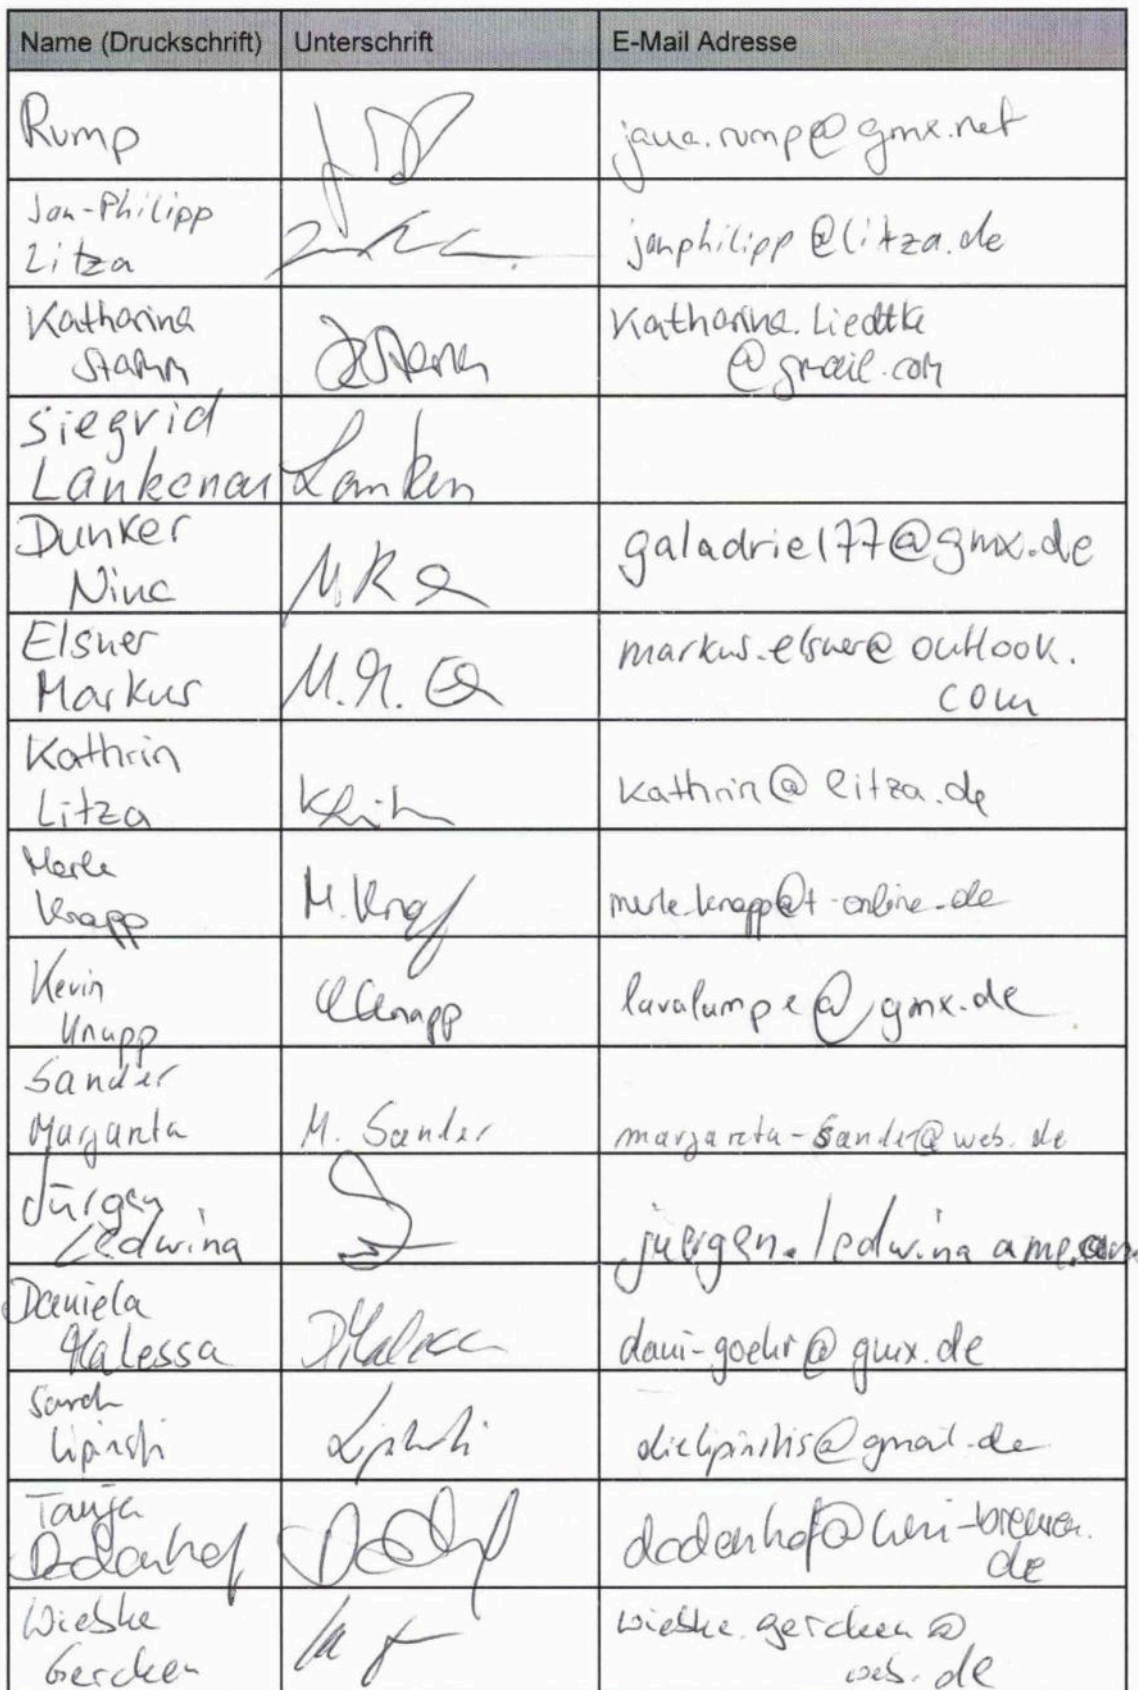 Name (Druckschrift) Unterschrift E-Mail Adresse
Rump jana.rump@gmx.net
Jan-Philipp
Litza janphilipp@litza.de
Katharina Katharina.Liedtke
Stamm @gmail.com
Siegrid
Lankenau Lanken
Dunker galadriel77@gmx.de
Nina
Elsner markus.elsner@outlook.
Markus com
Kathrin
Litza kathrin@litza.de
Merle
Knapp M. Knapp merle.knapp@t-online.de
Kevin
Knapp Knapp lavalampe@gmx.de
Sander
Margareta M. Sander margareta-sander@web.de
Jürgen
Ledwina juergen.ledwina
Daniela
Malessa dani-goehr@gmx.de
Sarah
Lipinski Lipinski dielipinskis@gmail.de
Tanja
Dodenhof dodenhof@uni-bremen.
de
Wiebke wiebke.gercken@
Gercken web.de